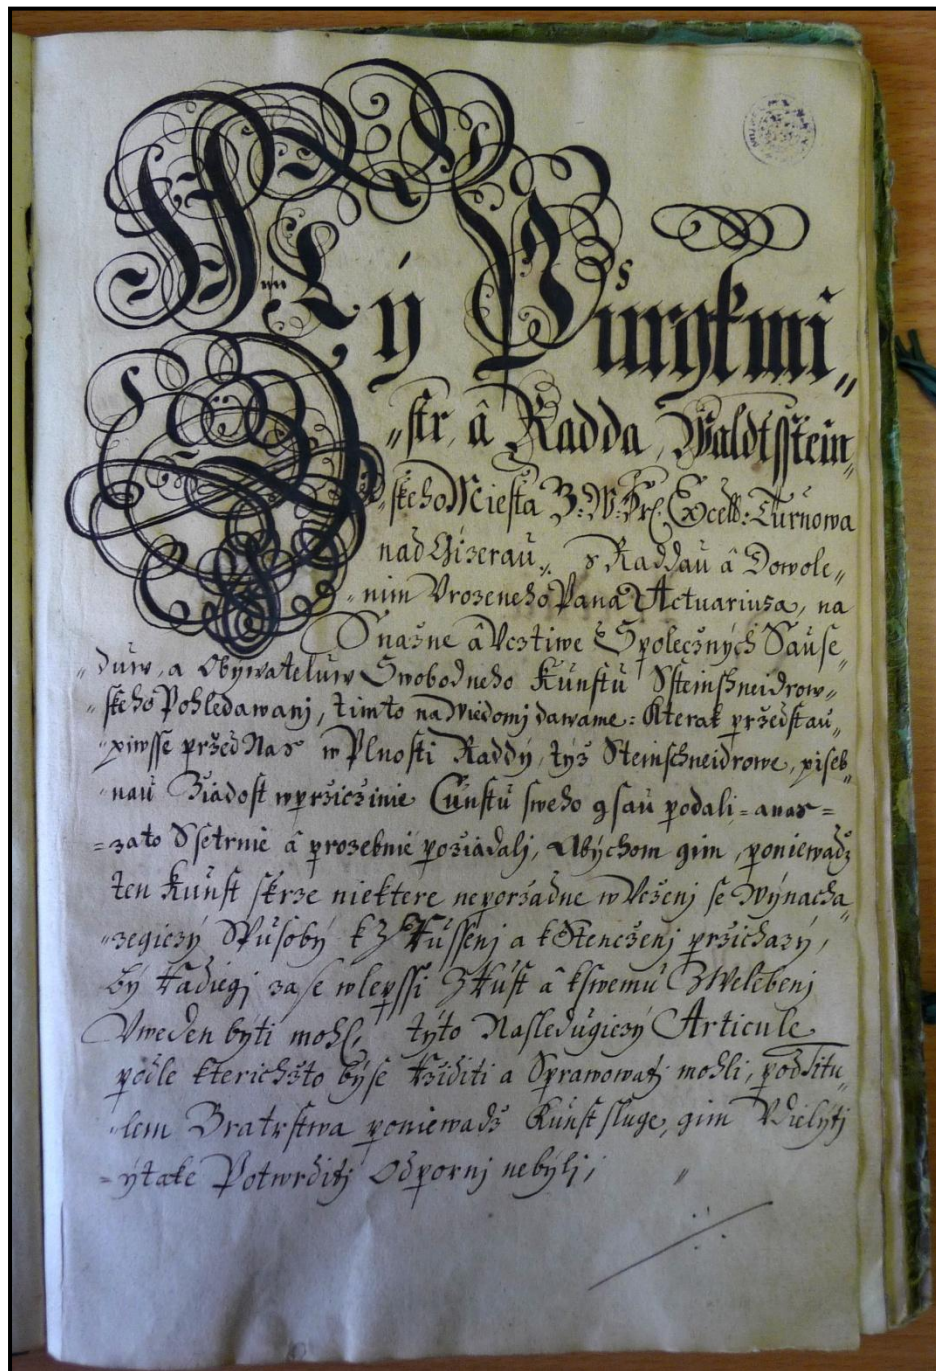 My Purgkmi„
„str, â Radda, Waldtsstein„
„skeho Miesta Excell: Turnowa
nad Gizerau„ s Raddau â Dowole„
„nim Urozeneho Pana Actuariusa, na
Snažne â Ucztiwe Spolecznych Sause„
„duw, a Obywateluw Swobodneho Kunstu Ssteinschneidrow„
„skeho Pohledawanj, timto na Wiedomj dawame: Kterak przedstau„
„piwsse przed Nas w Plnosti Raddy, tyz Steinschneidrowe, piseb„
„nau Ziadost w prziczinie Cunstu sweho gsau podali = a nas =
= za to Ssetrnie â prozebnie poziadalj, Abychom gim, poniewadz
ten Kunst skrze niektere neporzadne w Uczenj se Wynacha„
„zegiczy Spusoby k Zkussenj a k Stenczenj przichazy,
by radiegj zase w lepssi Zrust â k swemu Zwelebenj
Uweden byti mohl, tyto Nasledugiczy Articule
podle kterichzto by se rziditi a Sprawowatj mohli, pod titu„
„lem Bratrstwa poniewadz Kunst sluge, gim Udielytj
= y take Potwrditj Odpornj nebylj,